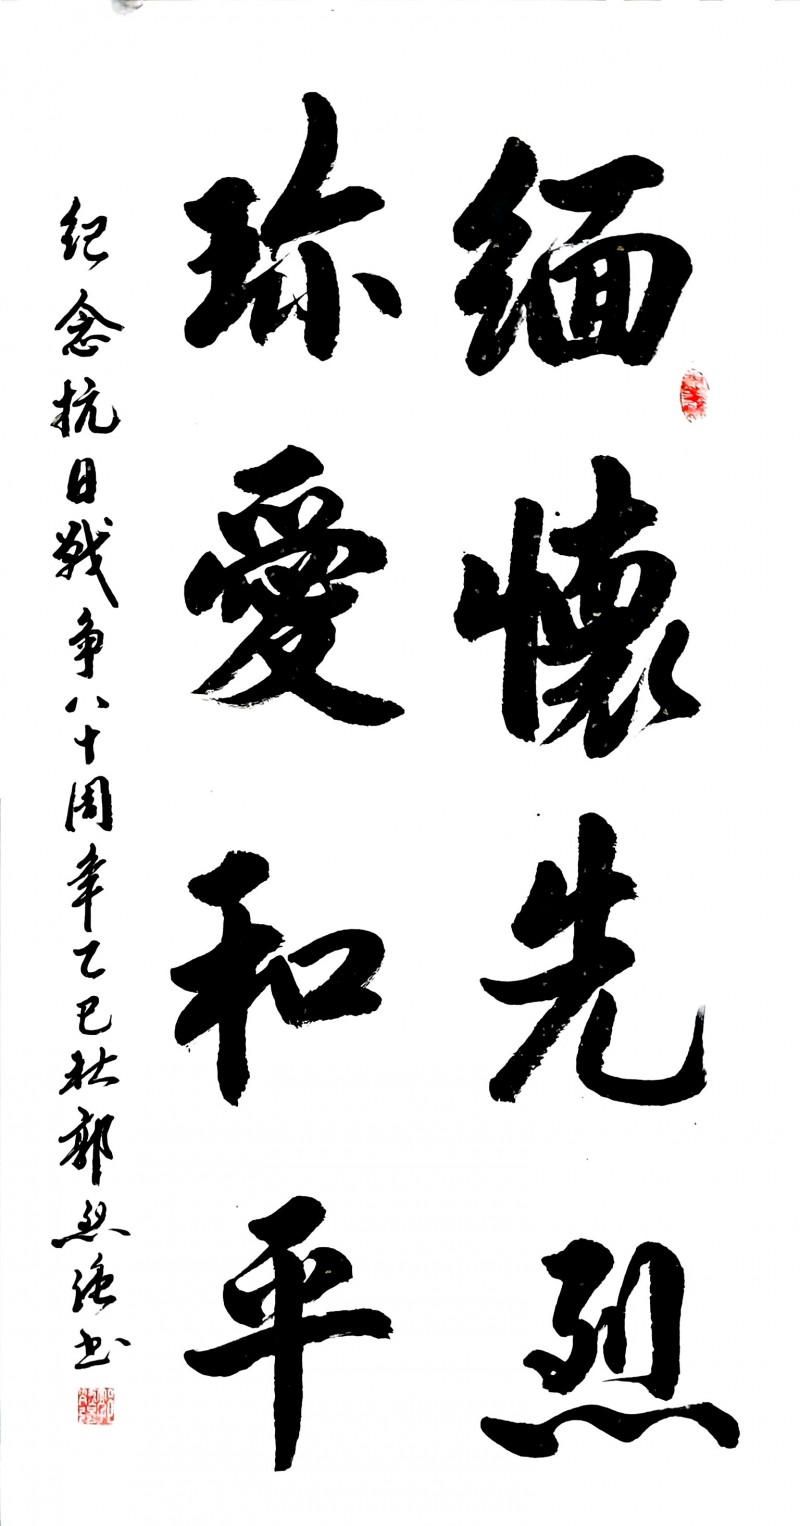 缅懷先烈
珎愛和平
纪念抗日战争八十周年乙巳秋郭书